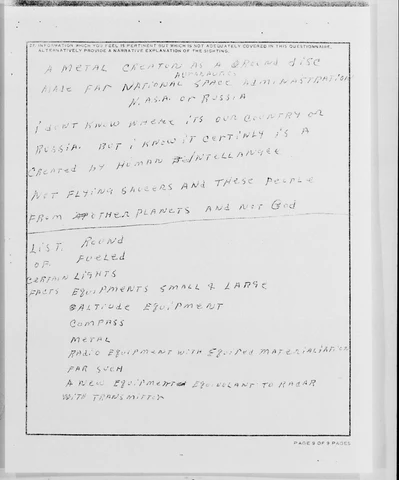 27. INFORMATION WHICH YOU FEEL IS PERTINENT BUT WHICH IS NOT ADEQUATELY COVERED IN THIS QUESTIONNAIRE, ALTERNATIVELY PROVIDE A NARRATIVE EXPLANATION OF THE SIGHTING.
A METAL CREATON AS A ROUND DISC
MADE FAR NATIONAL SPACE ADMINASTRATION
N.A.S.A. OR RUSSIA
I DONT KNOW WHERE ITS OUR COUNTRY OR
RUSSIA. BUT I KNOW IT CERTINLY IS A
CREATED BY HUMAN INTELLANGEE
NOT FLYING SAUCERS AND THESE PEOPLE
FROM OTHER PLANETS AND NOT GOD
LIST. ROUND
OF. FUELED
CERTAIN LIGHTS
FACTS EQUIPMENTS SMALL & LARGE
ALTITUDE EQUIPMENT
COMPASS
METAL
RADIO EQUIPMENT WITH EQUIPED MATERIALIATION
FAR SUCH
A NEW EQUIPMENTED EQUIVOLANT TO RADAR
WITH TRANSMITTOR
PAGE 9 OF 9 PAGES